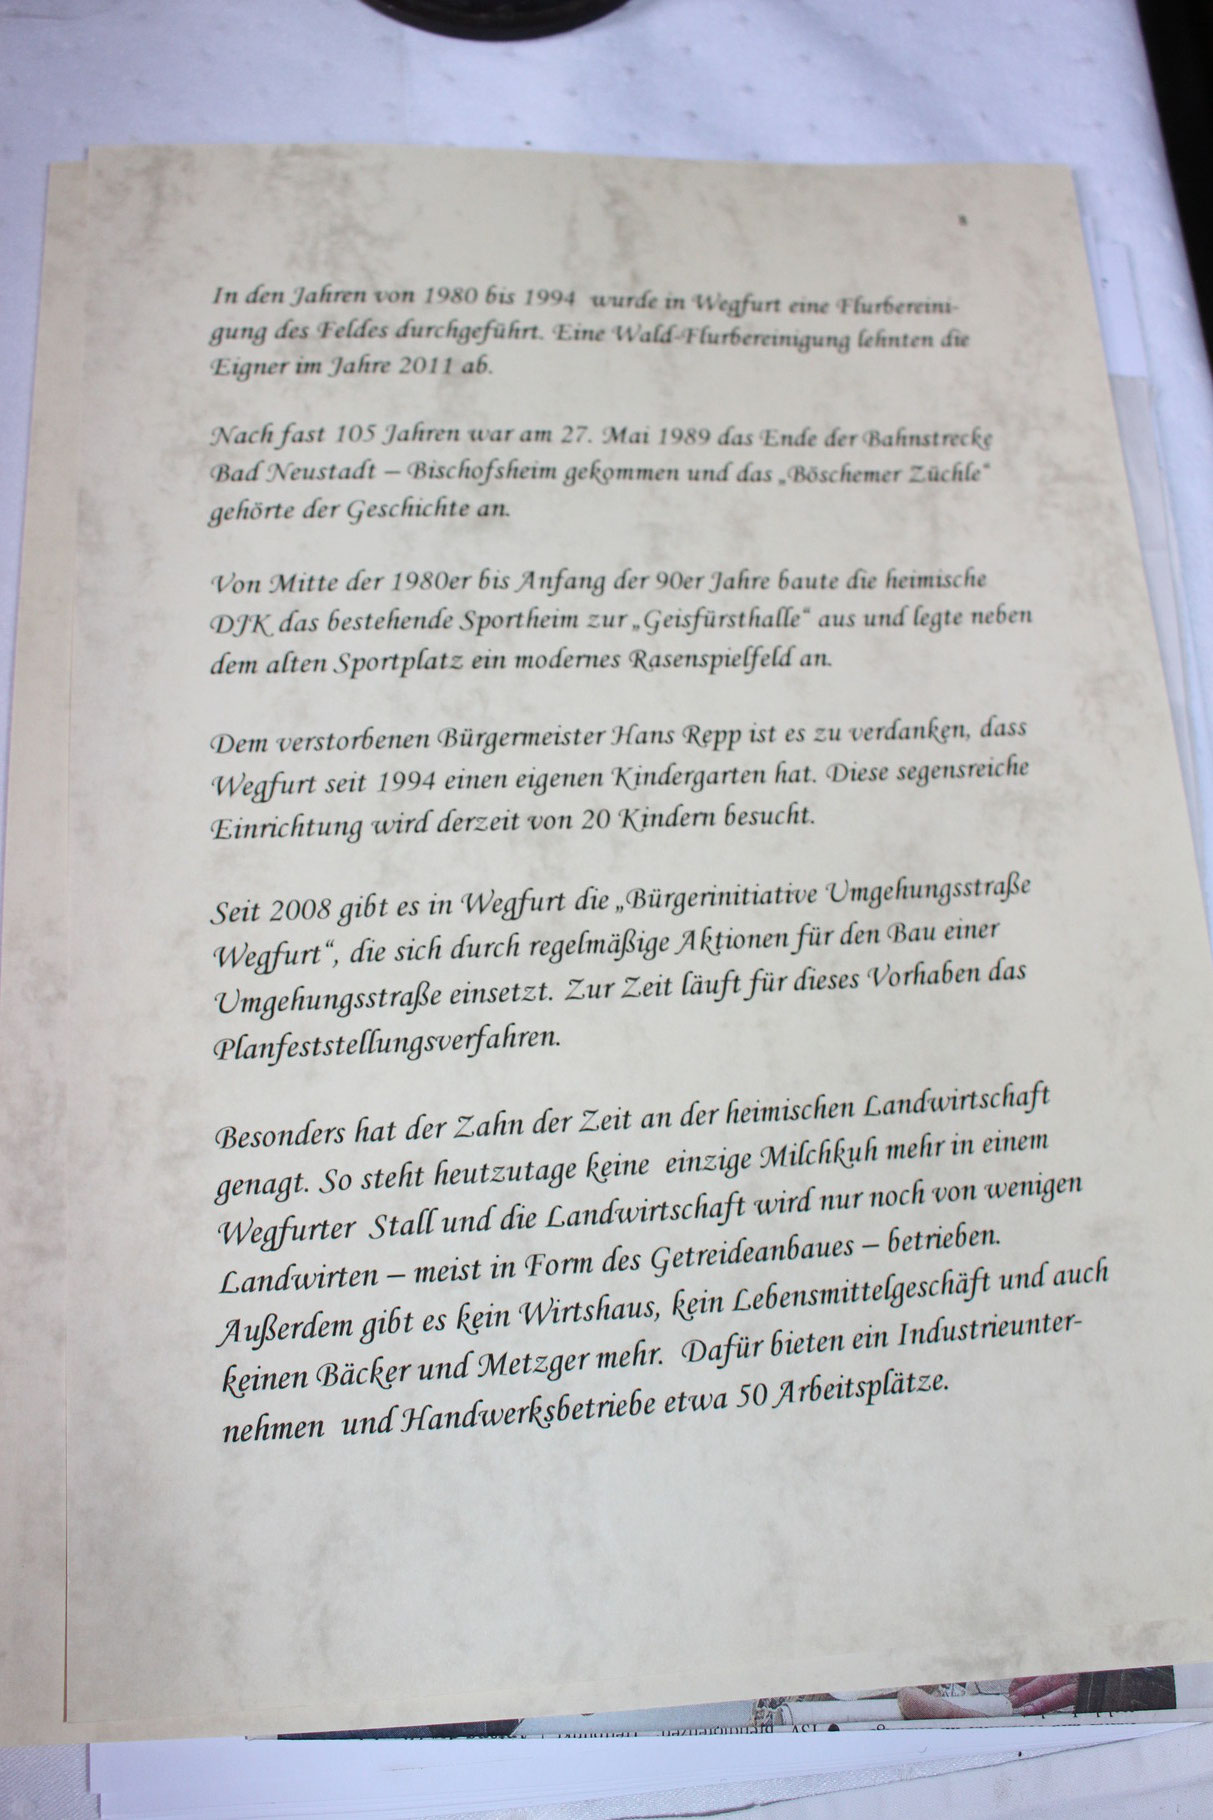 8
In den Jahren von 1980 bis 1994 wurde in Wegfurt eine Flurbereini-
gung des Feldes durchgeführt. Eine Wald-Flurbereinigung lehnten die
Eigner im Jahre 2011 ab.
Nach fast 105 Jahren war am 27. Mai 1989 das Ende der Bahnstrecke
Bad Neustadt – Bischofsheim gekommen und das „Böschemer Züchle“
gehörte der Geschichte an.
Von Mitte der 1980er bis Anfang der 90er Jahre baute die heimische
DJK das bestehende Sportheim zur „Geisfürsthalle“ aus und legte neben
dem alten Sportplatz ein modernes Rasenspielfeld an.
Dem verstorbenen Bürgermeister Hans Repp ist es zu verdanken, dass
Wegfurt seit 1994 einen eigenen Kindergarten hat. Diese segensreiche
Einrichtung wird derzeit von 20 Kindern besucht.
Seit 2008 gibt es in Wegfurt die „Bürgerinitiative Umgehungsstraße
Wegfurt“, die sich durch regelmäßige Aktionen für den Bau einer
Umgehungsstraße einsetzt. Zur Zeit läuft für dieses Vorhaben das
Planfeststellungsverfahren.
Besonders hat der Zahn der Zeit an der heimischen Landwirtschaft
genagt. So steht heutzutage keine einzige Milchkuh mehr in einem
Wegfurter Stall und die Landwirtschaft wird nur noch von wenigen
Landwirten – meist in Form des Getreideanbaues – betrieben.
Außerdem gibt es kein Wirtshaus, kein Lebensmittelgeschäft und auch
keinen Bäcker und Metzger mehr. Dafür bieten ein Industrieunter-
nehmen und Handwerksbetriebe etwa 50 Arbeitsplätze.